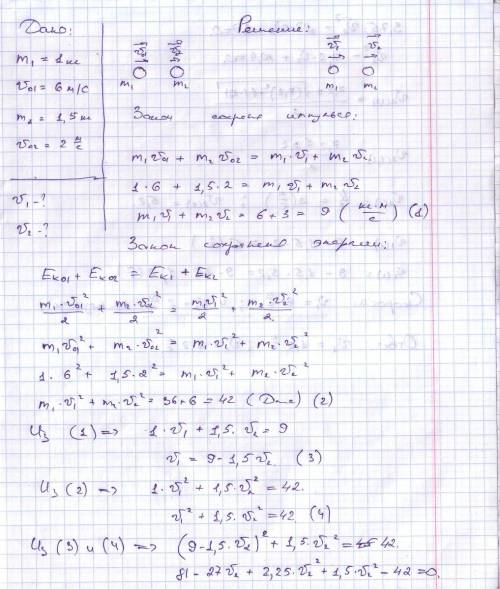 Дано:
m₁ = 1 кг
v₀₁ = 6 м/с
m₂ = 1,5 кг
v₀₂ = 2 м/с
v₁ - ?
v₂ - ?
Решение:
v₁ v₂
m₁ m₂
m₁ m₂
Закон сохране импульса:
m₁v₀₁ + m₂v₀₂ = m₁·v₁ + m₂v₂
1·6 + 1,5·2 = m₁v₁ + m₂v₂
m₁v₁ + m₂v₂ = 6 + 3 = 9 (кг·м/с) (1)
Закон сохранения энергии:
Eк₀₁ + Eк₀₂ = Eк₁ + Eк₂
m₁·v₀₁²/2 + m₂·v₀₂²/2 = m₁v₁²/2 + m₂·v₂²/2
m₁v₀₁² + m₂·v₀₂² = m₁·v₁² + m₂·v₂²
1·6² + 1,5·2² = m₁·v₁² + m₂·v₂²
m₁·v₁² + m₂·v₂² = 36+6 = 42 (Дж) (2)
Из (1) => 1·v₁ + 1,5·v₂ = 9
v₁ = 9 - 1,5v₂ (3)
Из (2) => 1·v₁² + 1,5·v₂² = 42.
v₁² + 1,5·v₂² = 42 (4)
Из (3) и (4) => (9-1,5·v₂)² + 1,5·v₂² = 42.
81 - 27v₂ + 2,25·v₂² + 1,5·v₂² - 42 = 0.